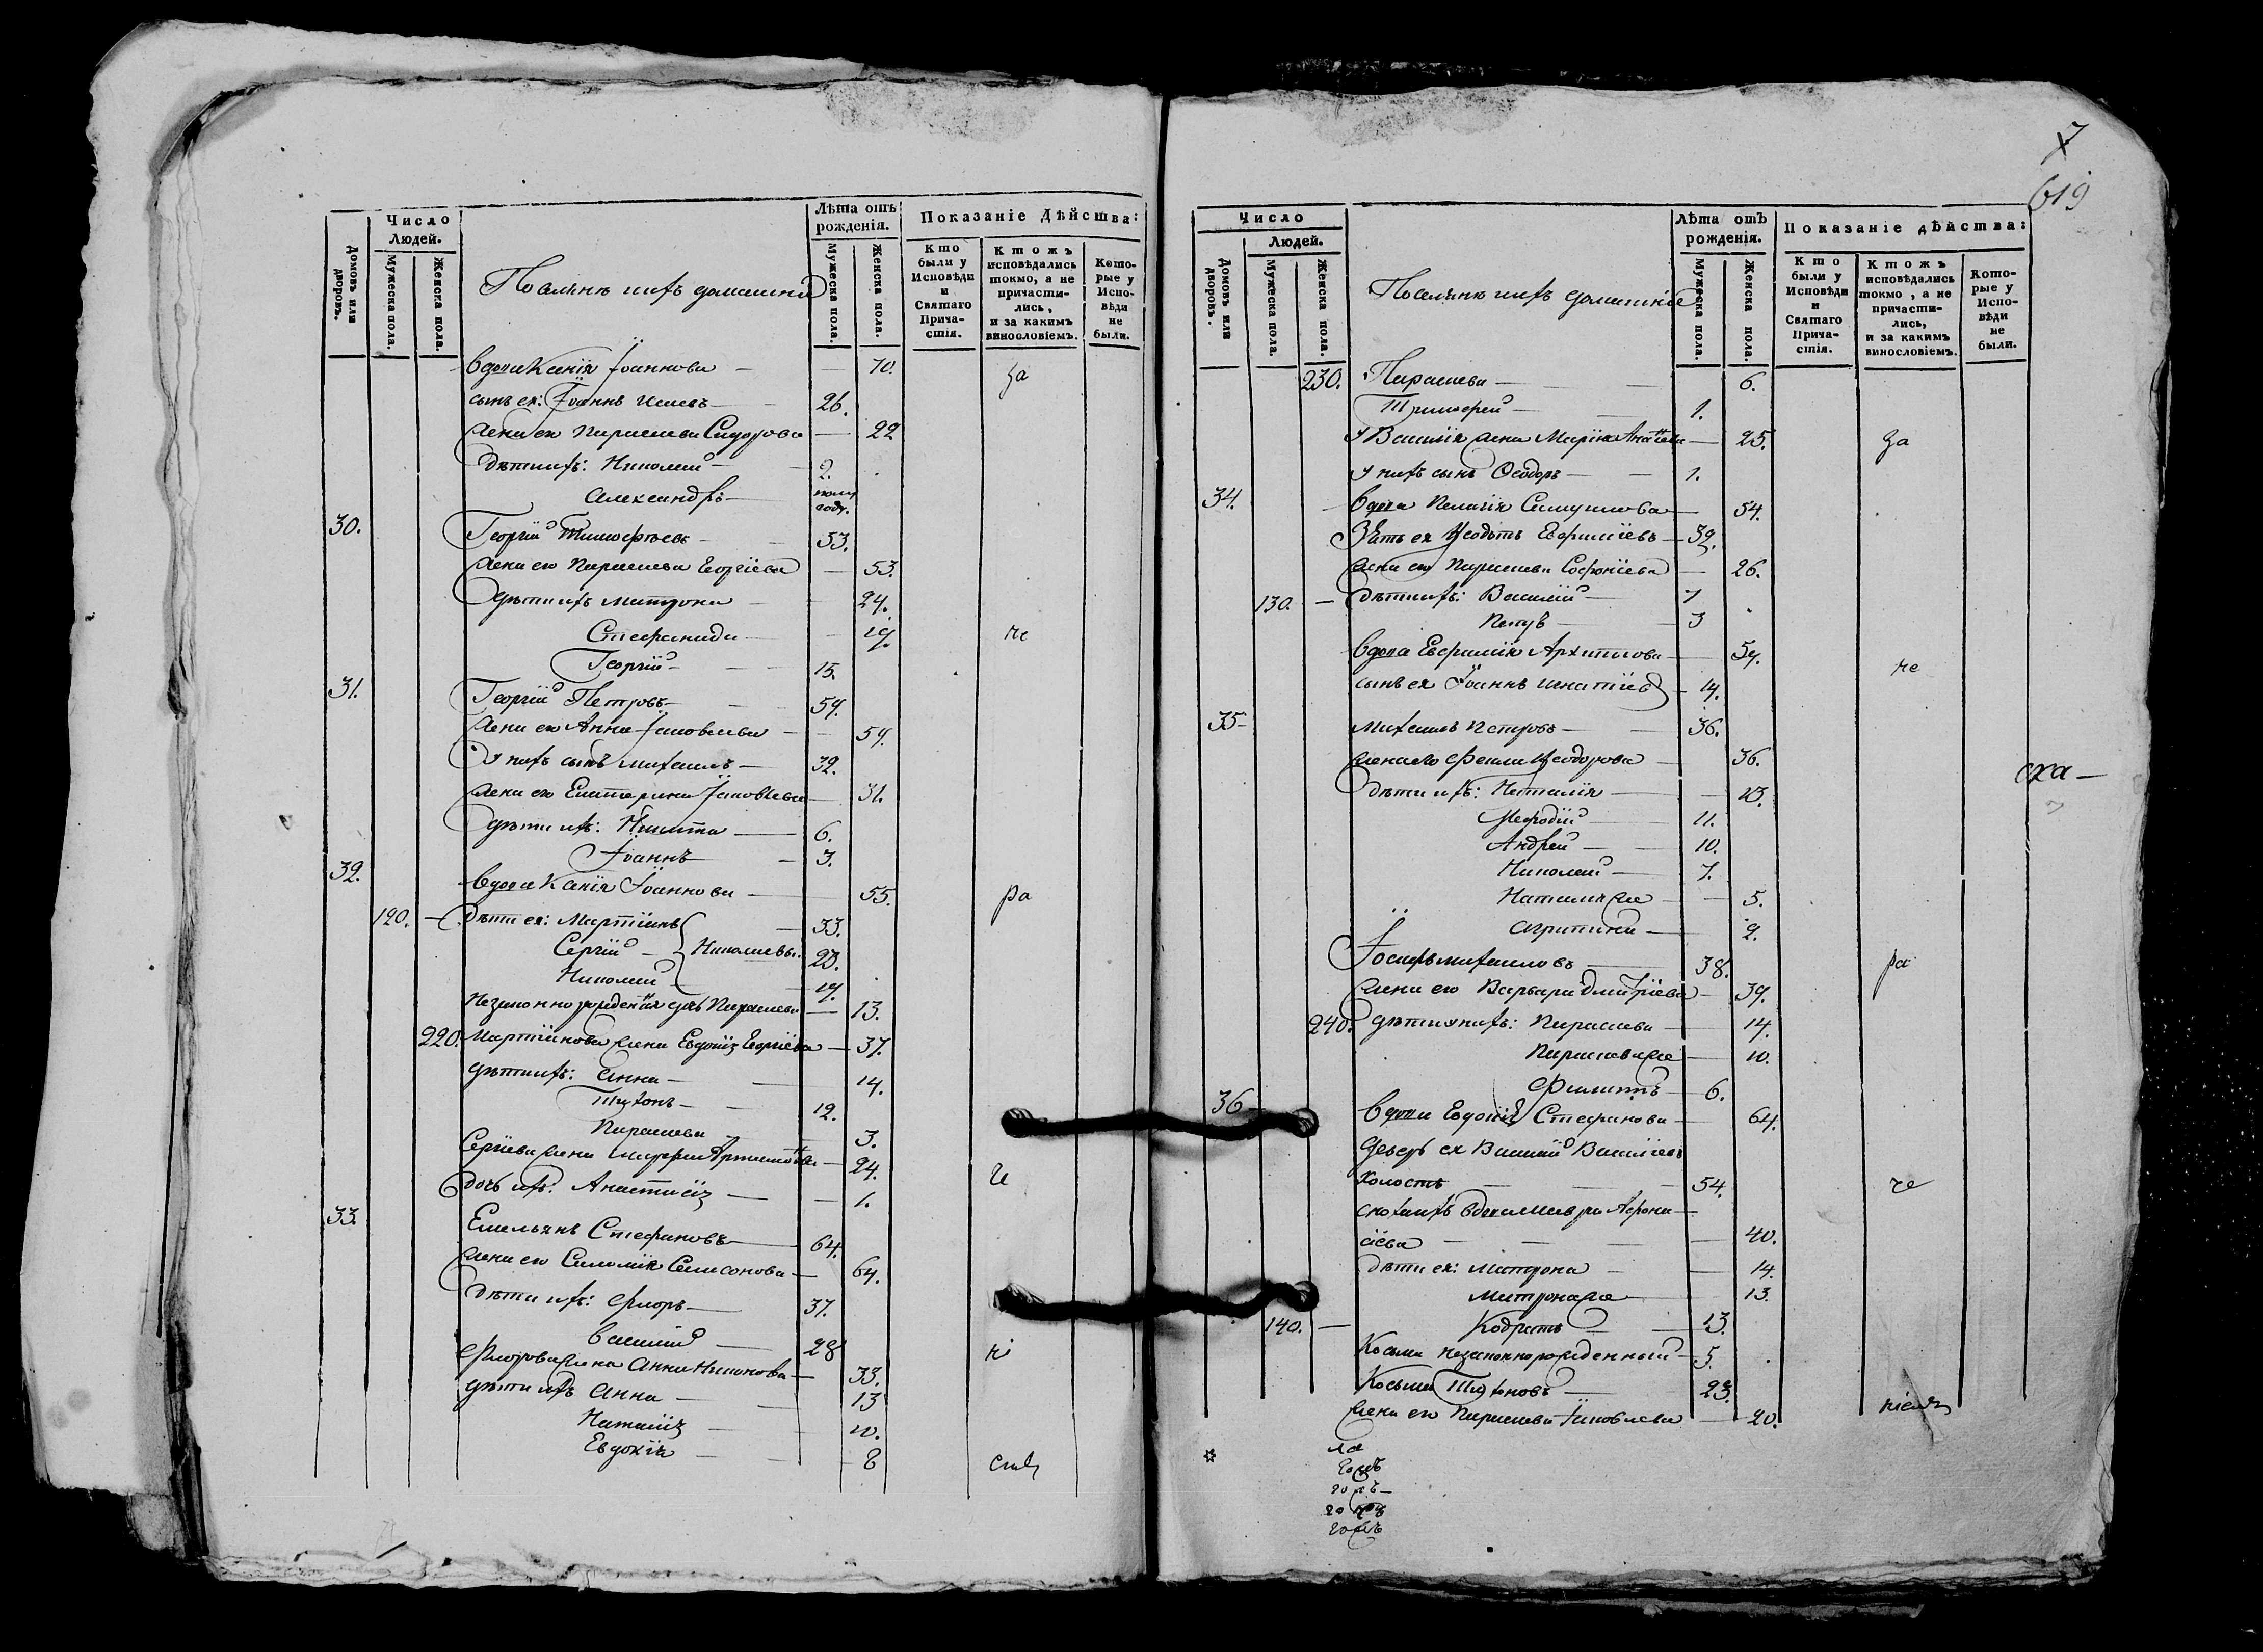 7
619
Число
Людей.
Лѣта отъ
рожденія.
Показаніе Дѣйства:
Домовъ или
дворовъ.
Мужеска пола.
Женска пола.
Поселянѣ ихъ домашнія
Мужеска пола.
Женска пола.
Кто
были у
Исповѣди
и
Святаго
Прича-
стія.
Ктожъ
исповѣдались
токмо, а не
причасти-
лись,
и за какимъ
винословіемъ.
Кото-
рые у
Испо-
вѣди
не
были.
вдова Ксенія Іоаннова — 70. за
сынъ ея: Іоаннъ — 26.
жена его Параскева Сидорова — 22
дѣти ихъ: Николай — 2.
Александръ — полу
году.
30. Георгій Тимофѣевъ — 53.
жена его Параскева Георгіева — 53.
дѣти ихъ Матрона — 24.
Стефанида — 19. че
Георгій — 15.
31. Георгій Петровъ — 59.
жена его Анна Іаковлева — 59.
У нихъ сынъ Михаилъ — 32.
жена его Екатерина Іаковлева — 31.
дѣти ихъ: Никита — 6.
Іоаннъ — 3.
32. вдова Ксенія Іоаннова — 55. ра
120. — дѣти ея: Мартінъ — 33.
Сергій — Николаевы. 23.
Николай 19.
Незаконнорожденная дочь Параскева — 13.
220. Мартінова жена Евдокія Георгіева — 37.
дѣти ихъ: Анна — 14.
Тихонъ — 12.
Параскева — 3.
Сергіева жена Марфа — 24. че
дочь ихъ: Анастасія — 1.
33. Емельянъ Стефановъ — 64.
жена его Саломія Самсонова — 64.
дѣти ихъ: Флоръ — 37.
Василій — 28 ні
Флорова жена Анна — 33.
дѣти ихъ Анна — 13
Наталія — 10.
Евдокія — 8
Число
Людей.
Лѣта отъ
рожденія.
Показаніе дѣйства:
Домовъ или
дворовъ.
Мужеска пола.
Женска пола.
Поселянѣ ихъ домашніе
Мужеска пола.
Женска пола.
Кто
были у
Исповѣди
и
Святаго
Прича-
стія.
Ктожъ
исповѣдались
токмо, а не
причасти-
лись,
и за какимъ
винословіемъ.
Кото-
рые у
Испо-
вѣди
не
были.
230. Параскева — 6.
Тимофей — 1.
У Василія жена Марія — 25. за
У нихъ сынъ Ѳеодоръ — 1.
34. вдова Пелагія — 54.
Зять ея Ѳеодотъ Евфиміевъ — 32.
жена его Параскева Софоніева — 26.
130. — дѣти ихъ: Василій — 7
Петръ — 3
вдова Евфимія Архипова — 59. че
сынъ ея Іоаннъ Игнатіевъ — 14.
35 Михаилъ Петровъ — 36.
жена его Фекла Ѳеодорова — 36.
дѣти ихъ: Наталія — 13.
Меѳодій — 11.
Андрей — 10.
Николай — 7.
Наталія же — 5.
Агрипина — 2.
Іосифъ Михаиловъ — 38. ра
жена его Варвара Дмитріева — 39.
240. дѣти у нихъ: Параскева — 14.
Параскева же — 10.
Филиппъ — 6.
36 вдова Евдокія Стефанова — 64.
Деверь ея Василій Василіевъ
Холостъ — 54. че
сноха ихъ вдова Мавра Афона-
сіева — 40.
дѣти ея: Матрона — 14.
Матрона же — 13.
140. — Кодратъ — 13.
Косьма незаконнорожденный — 5.
Косьма Тихоновъ — 23.
жена его Параскева Іаковлева — 20.